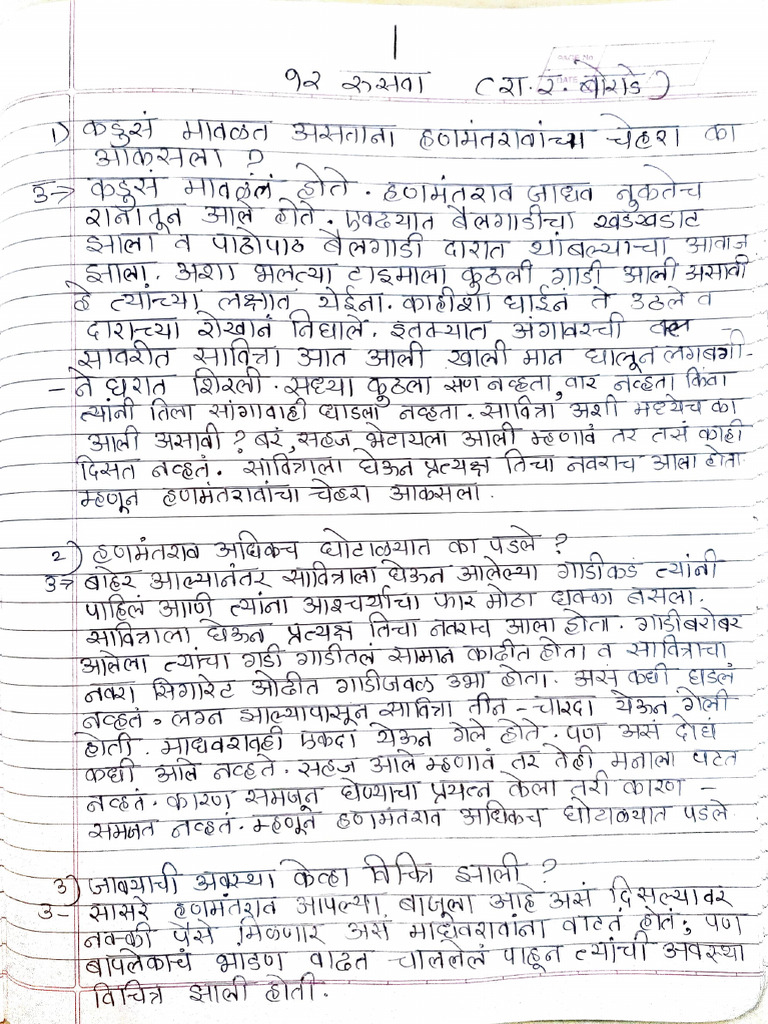 1
१२ रुसवा (रा. रं. बोराडे)
1) कडुसं मावळत असताना हणमंतरावांचा चेहरा का
आकसला ?
उ→ कडुसं मावळलं होते. हणमंतराव जाधव नुकतेच
रानातून आले होते. एवढयात बैलगाडीचा खडखडाट
झाला व पाठोपाठ बैलगाडी दारात थांबल्याचा आवाज
झाला. अशा भलत्या टाइमाला कुठली गाडी आली असावी
हे त्यांच्या लक्षात येईना. काहीशा घाईनं ते उठले व
दाराच्या रोखानं निघाले. इतक्यात अंगावरची वस्त्र
सावरीत सावित्रा आत आली खाली मान घालून लगबगी-
-ने घरात शिरली. सध्या कुठला सण नव्हता, वार नव्हता किंवा
त्यांनी तिला सांगावाही धाडला नव्हता. सावित्रा अशी मध्येच का
आली असावी ? बरं, सहज भेटायला आली म्हणावं तर तसं काही
दिसत नव्हतं. सावित्राला घेऊन प्रत्यक्ष तिचा नवराच आला होता
म्हणून हणमंतरावांचा चेहरा आकसला.
2) हणमंतराव अधिकच घोटाळयात का पडले ?
उ→ बाहेर आल्यानंतर सावित्राला घेऊन आलेल्या गाडीकडं त्यांनी
पाहिलं आणि त्यांना आश्चर्याचा फार मोठा धक्का बसला.
सावित्राला घेऊन प्रत्यक्ष तिचा नवराच आला होता. गाडीबरोबर
आलेला त्यांचा गडी गाडीतलं सामान काढीत होता व सावित्राचा
नवरा सिगारेट ओढीत गाडीजवळ उभा होता. असं कधी घडलं
नव्हतं. लग्न झाल्यापासून सावित्रा तीन-चारदा येऊन गेली
होती. माधवरावही एकदा येऊन गेले होते. पण असं दोघं
कधी आले नव्हते. सहज आले म्हणावं तर तेही मनाला पटत
नव्हतं. कारण समजून घेण्याचा प्रयत्न केला तरी कारण -
समजत नव्हतं. म्हणून हणमंतराव अधिकच घोटाळयात पडले
3) जावयाची अवस्था केव्हा विचित्र झाली ?
उ- सासरे हणमंतराव आपल्या बाजूला आहे असं दिसल्यावर
नक्की पैसे मिळणार असं माधवरावांना वाटतं होतं; पण
बापलेकाचं भांडण वाढत चाललेलं पाहून त्यांची अवस्था
विचित्र झाली होती.